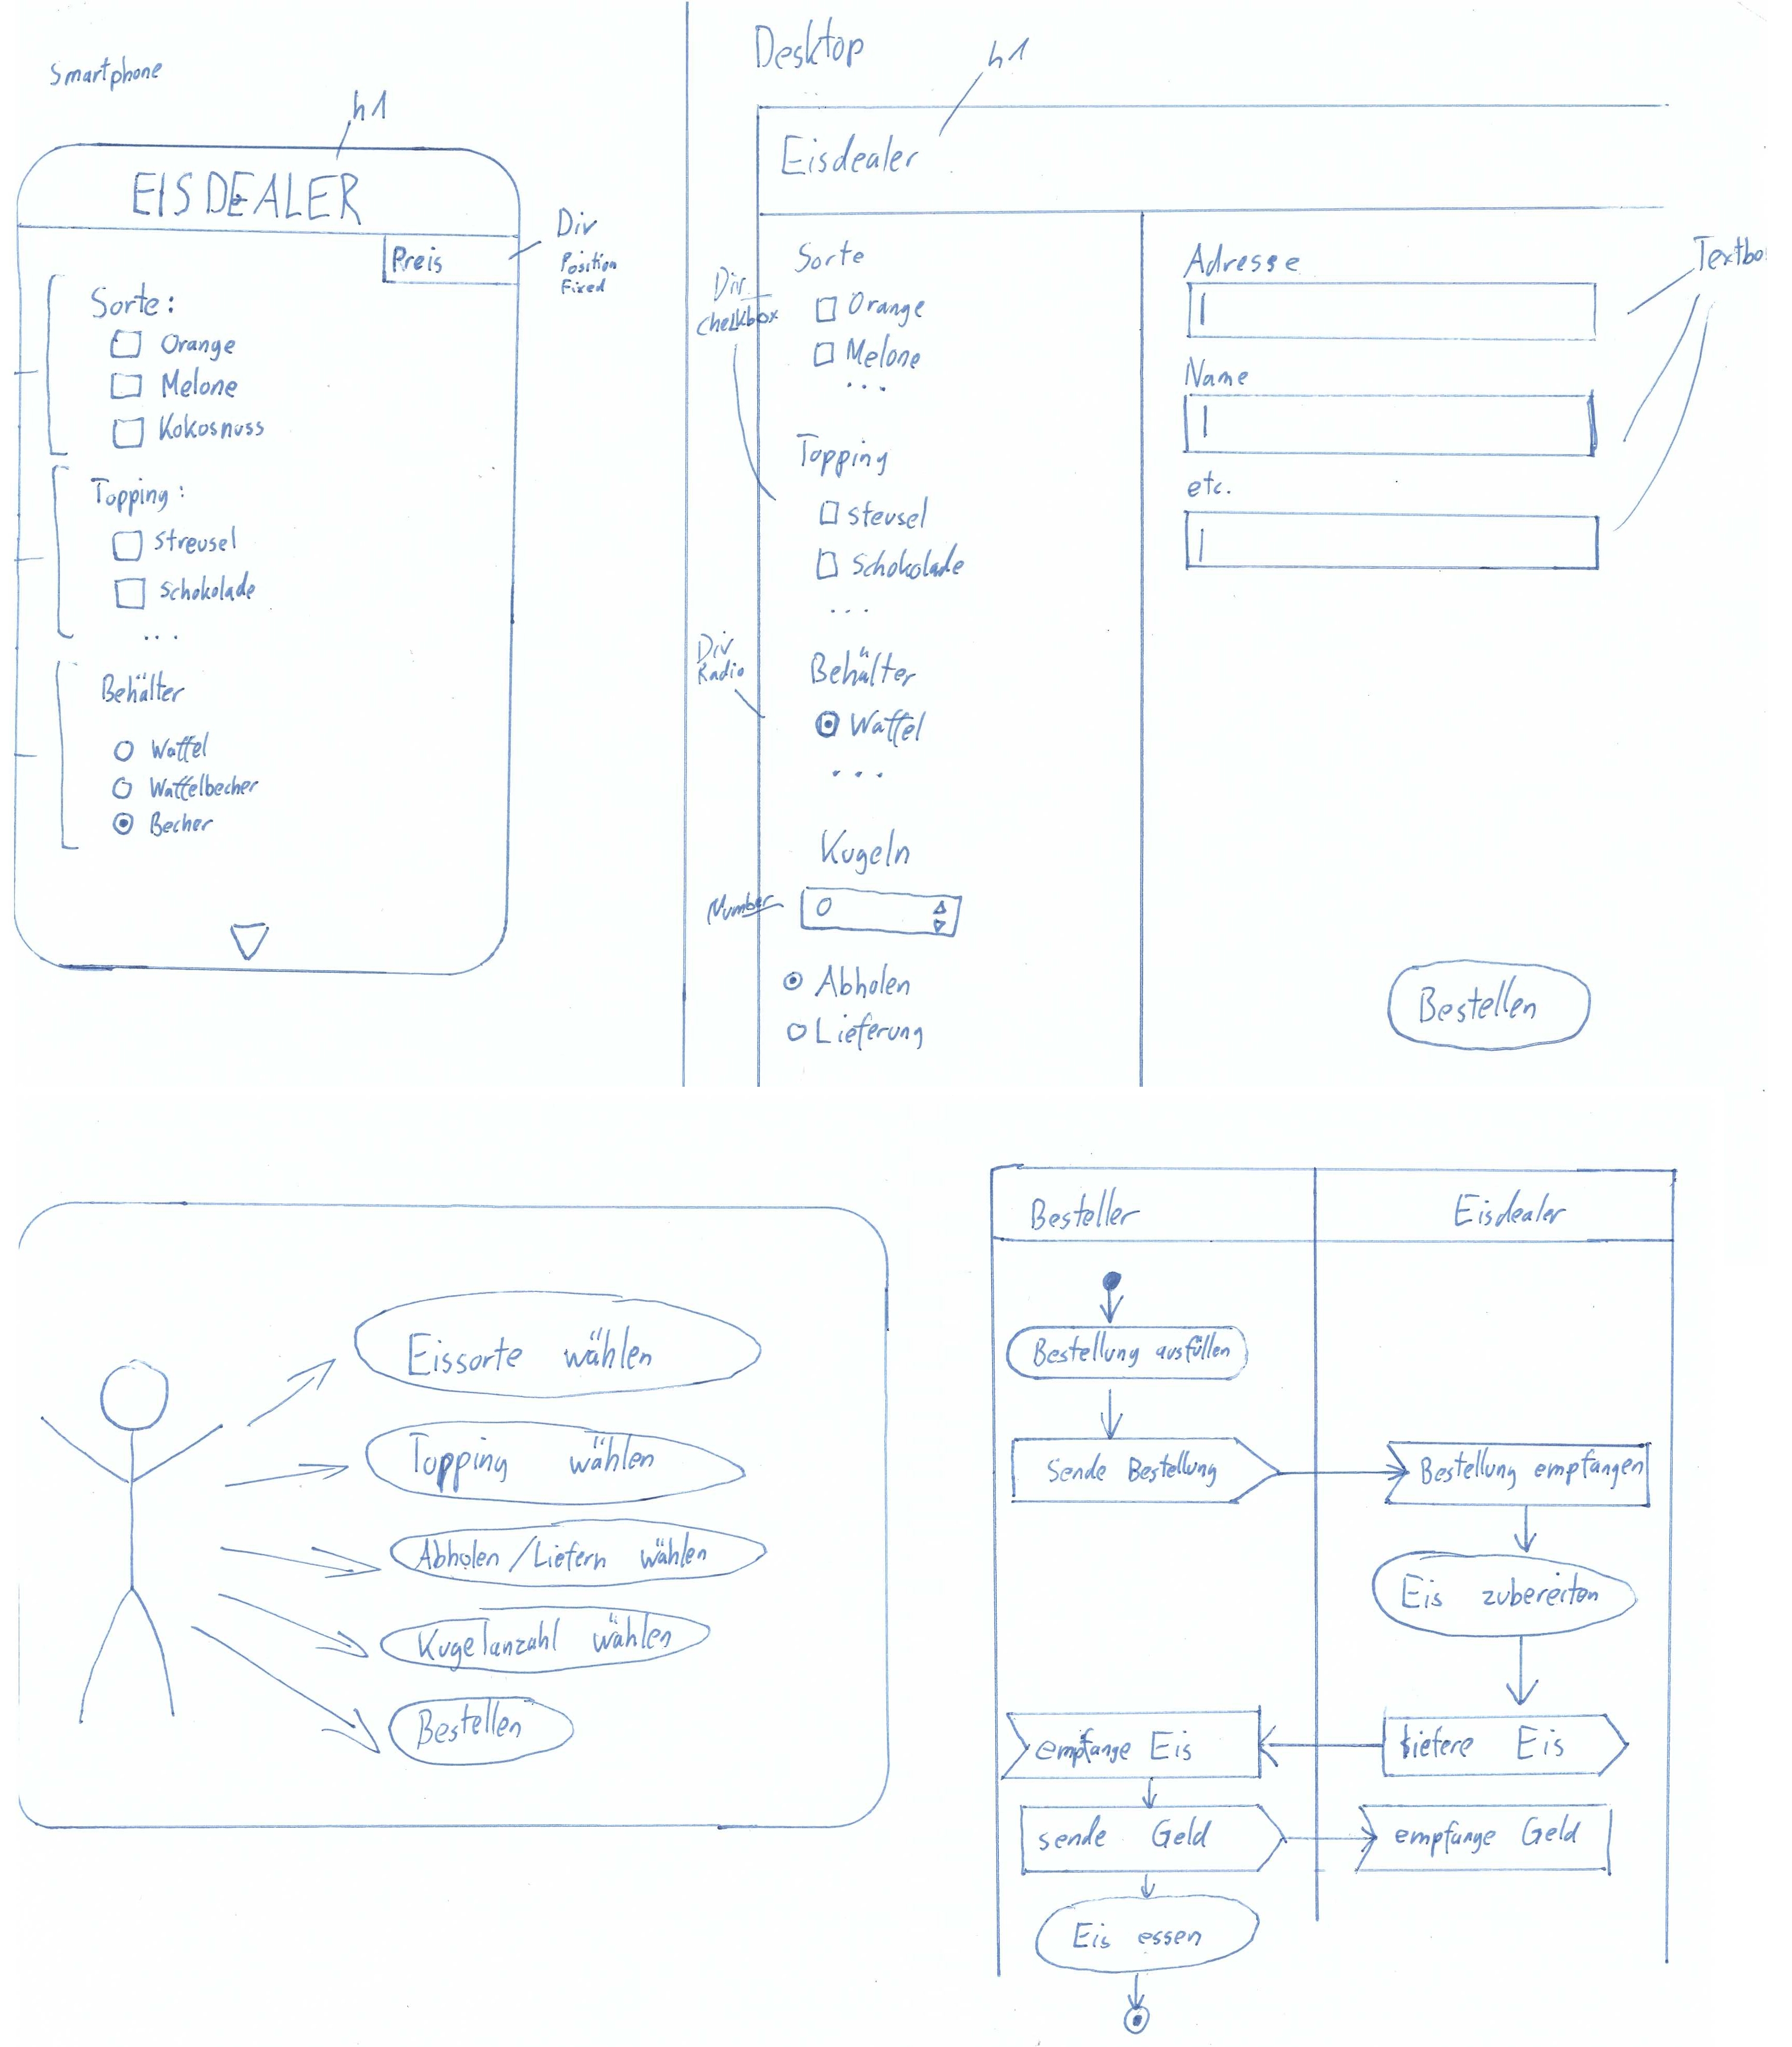 Smartphone
h1
EISDEALER
Preis
Div
Position
Fixed
Sorte:
Orange
Melone
Kokosnuss
Topping:
Streusel
Schokolade
...
Behälter
Waffel
Waffelbecher
Becher
Desktop
h1
Eisdealer
Div
Checkbox
Sorte
Orange
Melone
...
Topping
Steusel
Schokolade
...
Div
Radio
Behälter
Waffel
...
Kugeln
Number
0
Abholen
Lieferung
Adresse
Textbo
Name
etc.
Bestellen
Eissorte wählen
Topping wählen
Abholen/Liefern wählen
Kugelanzahl wählen
Bestellen
Besteller
Eisdealer
Bestellung ausfüllen
Sende Bestellung
Bestellung empfangen
Eis zubereiten
liefere Eis
empfange Eis
sende Geld
empfange Geld
Eis essen